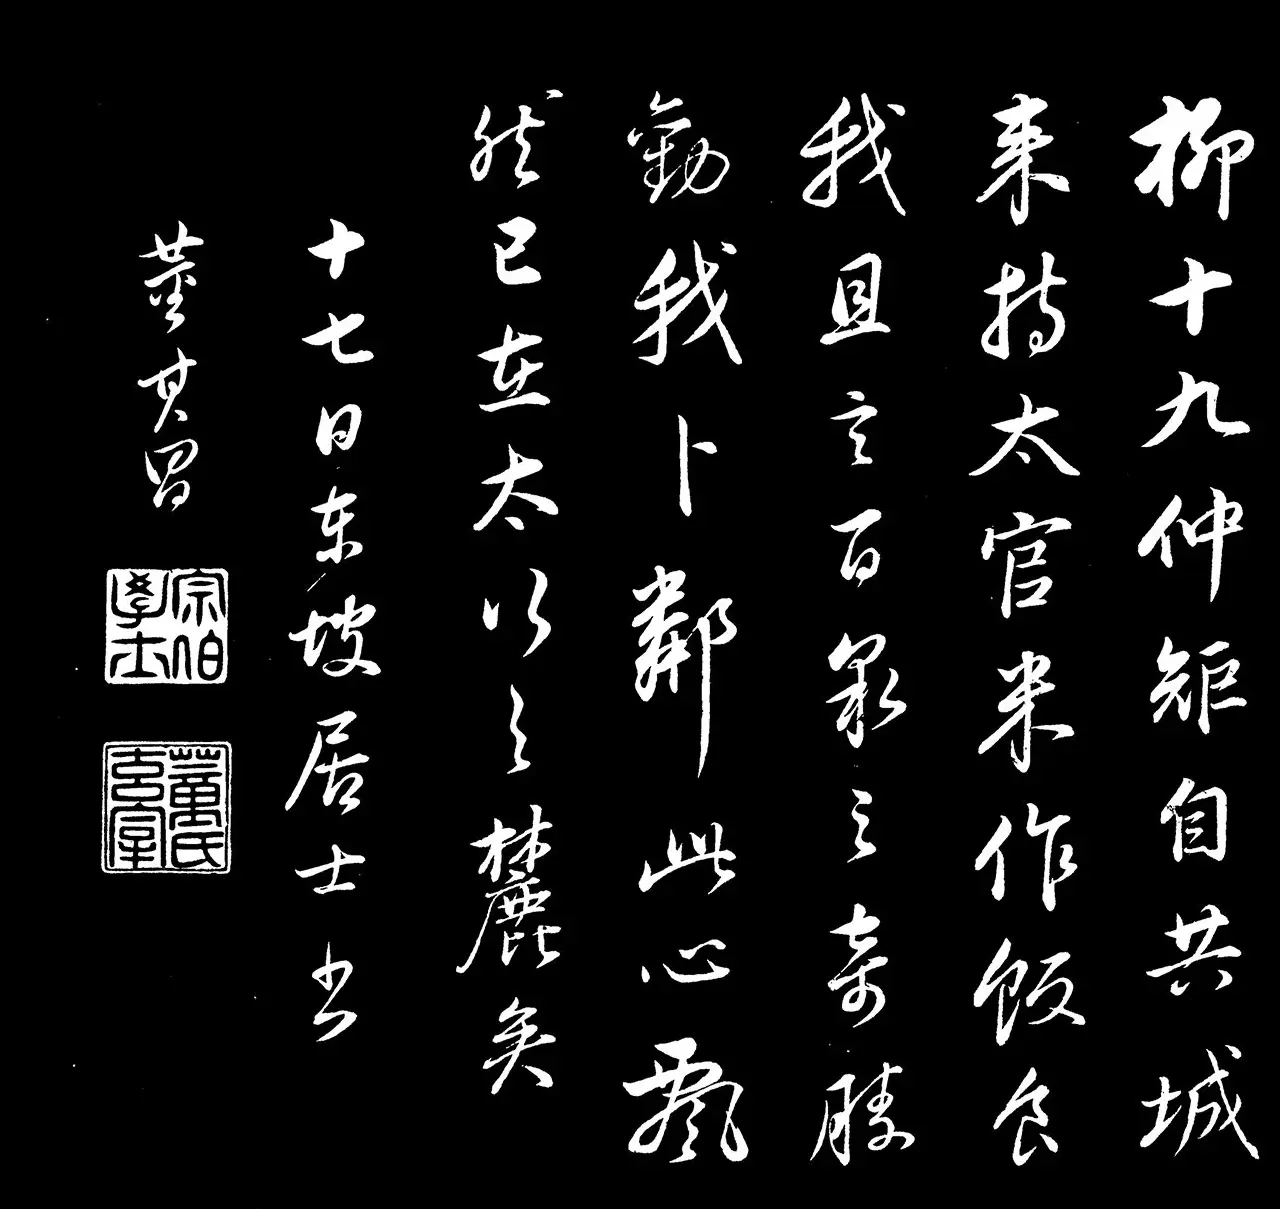 柳十九仲矩自共城
來持太官米作飯食
我且言百泉之奇勝
勸我卜鄰此心飄
然已在太行之麓矣
十七日東坡居士書
董其昌
宗伯學士
董氏玄宰